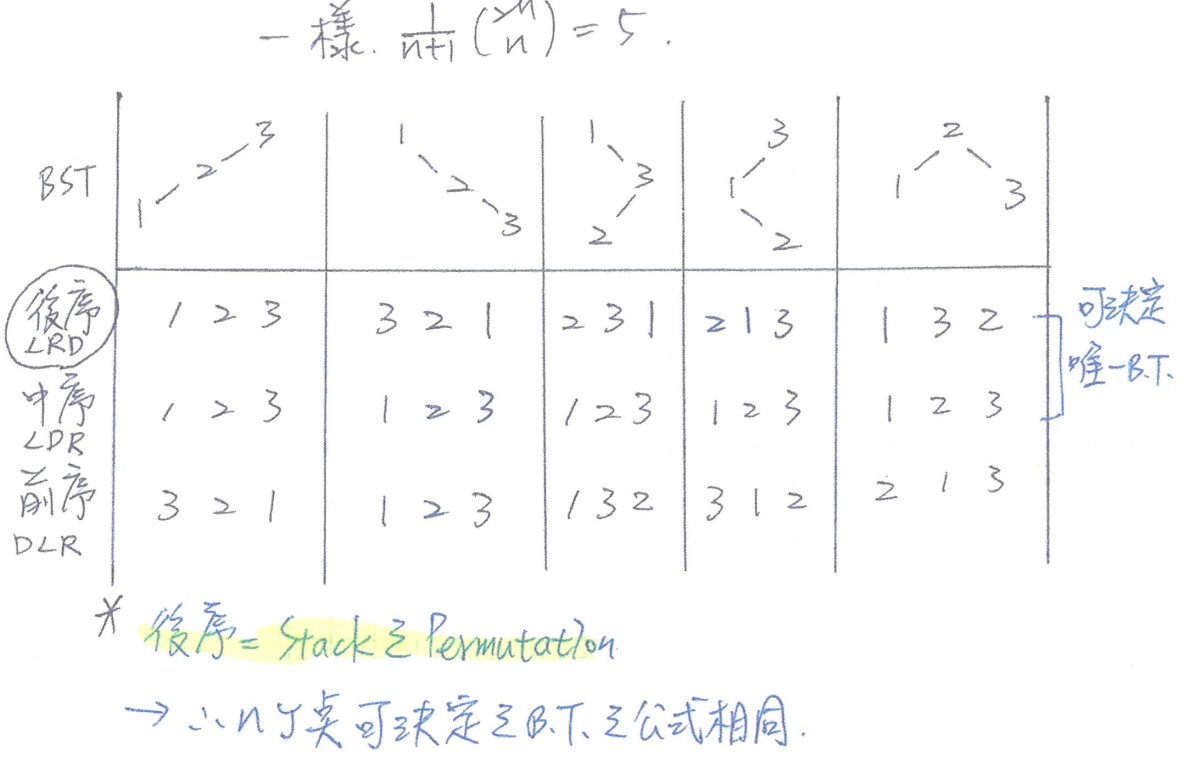 一樣. 1/(n+1) (2n n) = 5.
BST
3 2 1
1 2 3
1 3 2
3 1 2
2 1 3
後序 LRD
1 2 3
3 2 1
2 3 1
2 1 3
1 3 2
可決定
唯一B.T.
中序 LDR
1 2 3
1 2 3
1 2 3
1 2 3
1 2 3
前序 DLR
3 2 1
1 2 3
1 3 2
3 1 2
2 1 3
* 後序 = Stack 之 Permutation
→ ∴ n 個 可決定之B.T.之公式相同.